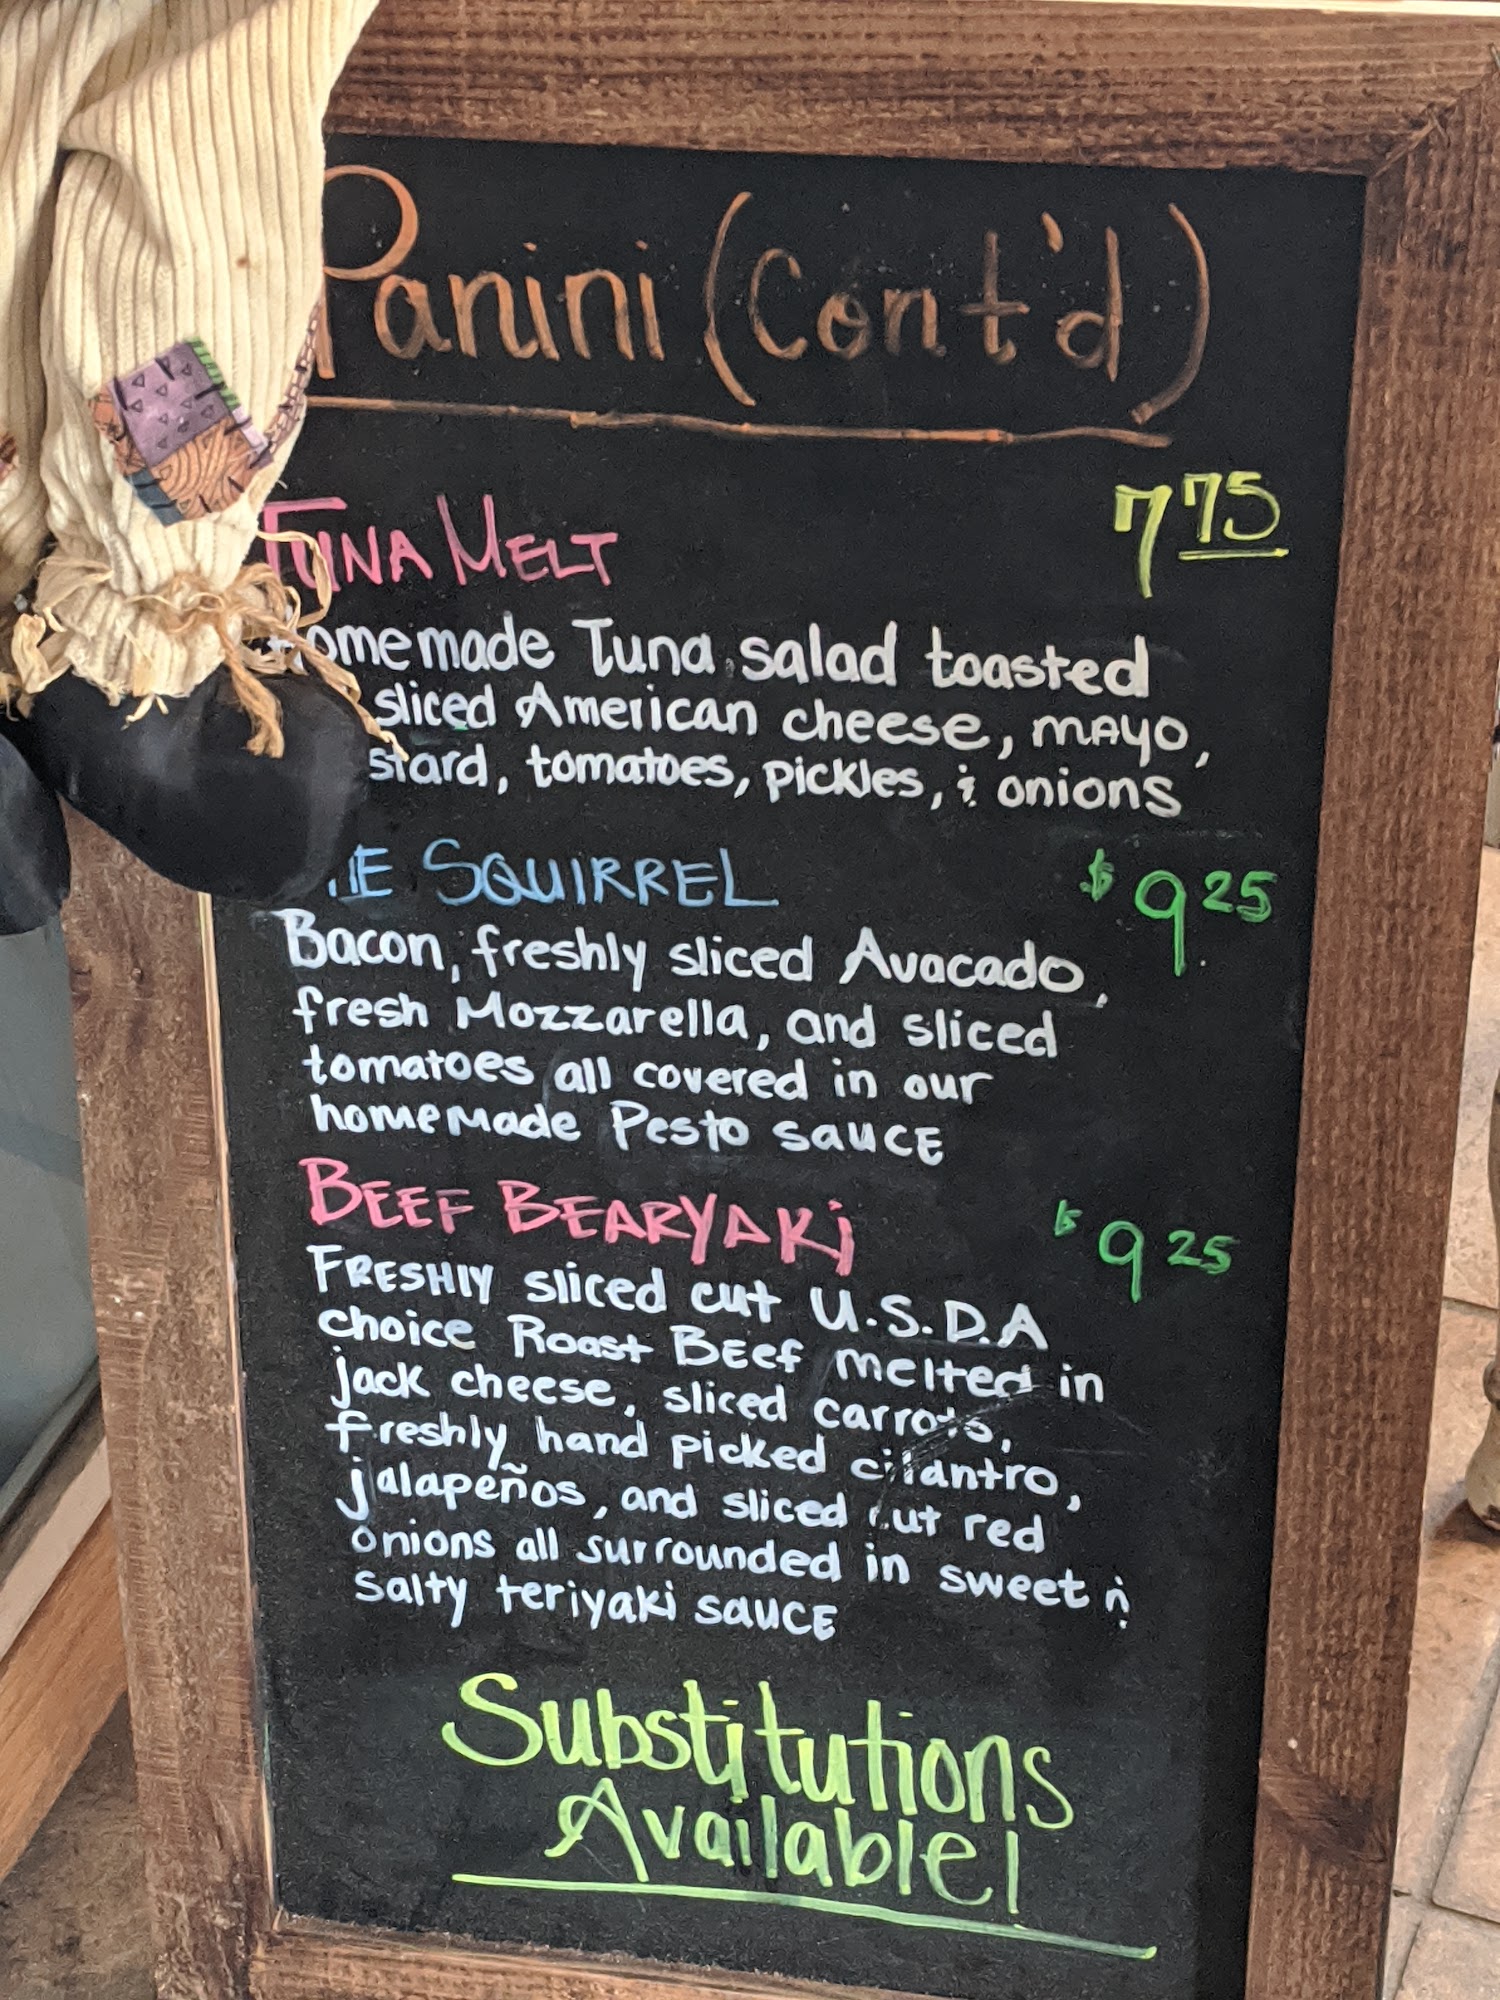 Panini (Cont'd)
TUNA MELT 7 75
Homemade Tuna salad toasted
sliced American cheese, mayo,
stard, tomatoes, pickles, & onions
HE SQUIRREL $9 25
Bacon, freshly sliced Avacado,
fresh Mozzarella, and sliced
tomatoes all covered in our
homemade Pesto sauce
BEEF BEARYAKi $9 25
FRESHLY sliced cut U.S.D.A
choice Roast Beef melted in
jack cheese, sliced carrots,
freshly hand picked cilantro,
jalapeños, and sliced cut red
onions all surrounded in sweet n
salty teriyaki sauce
Substitutions
Available!